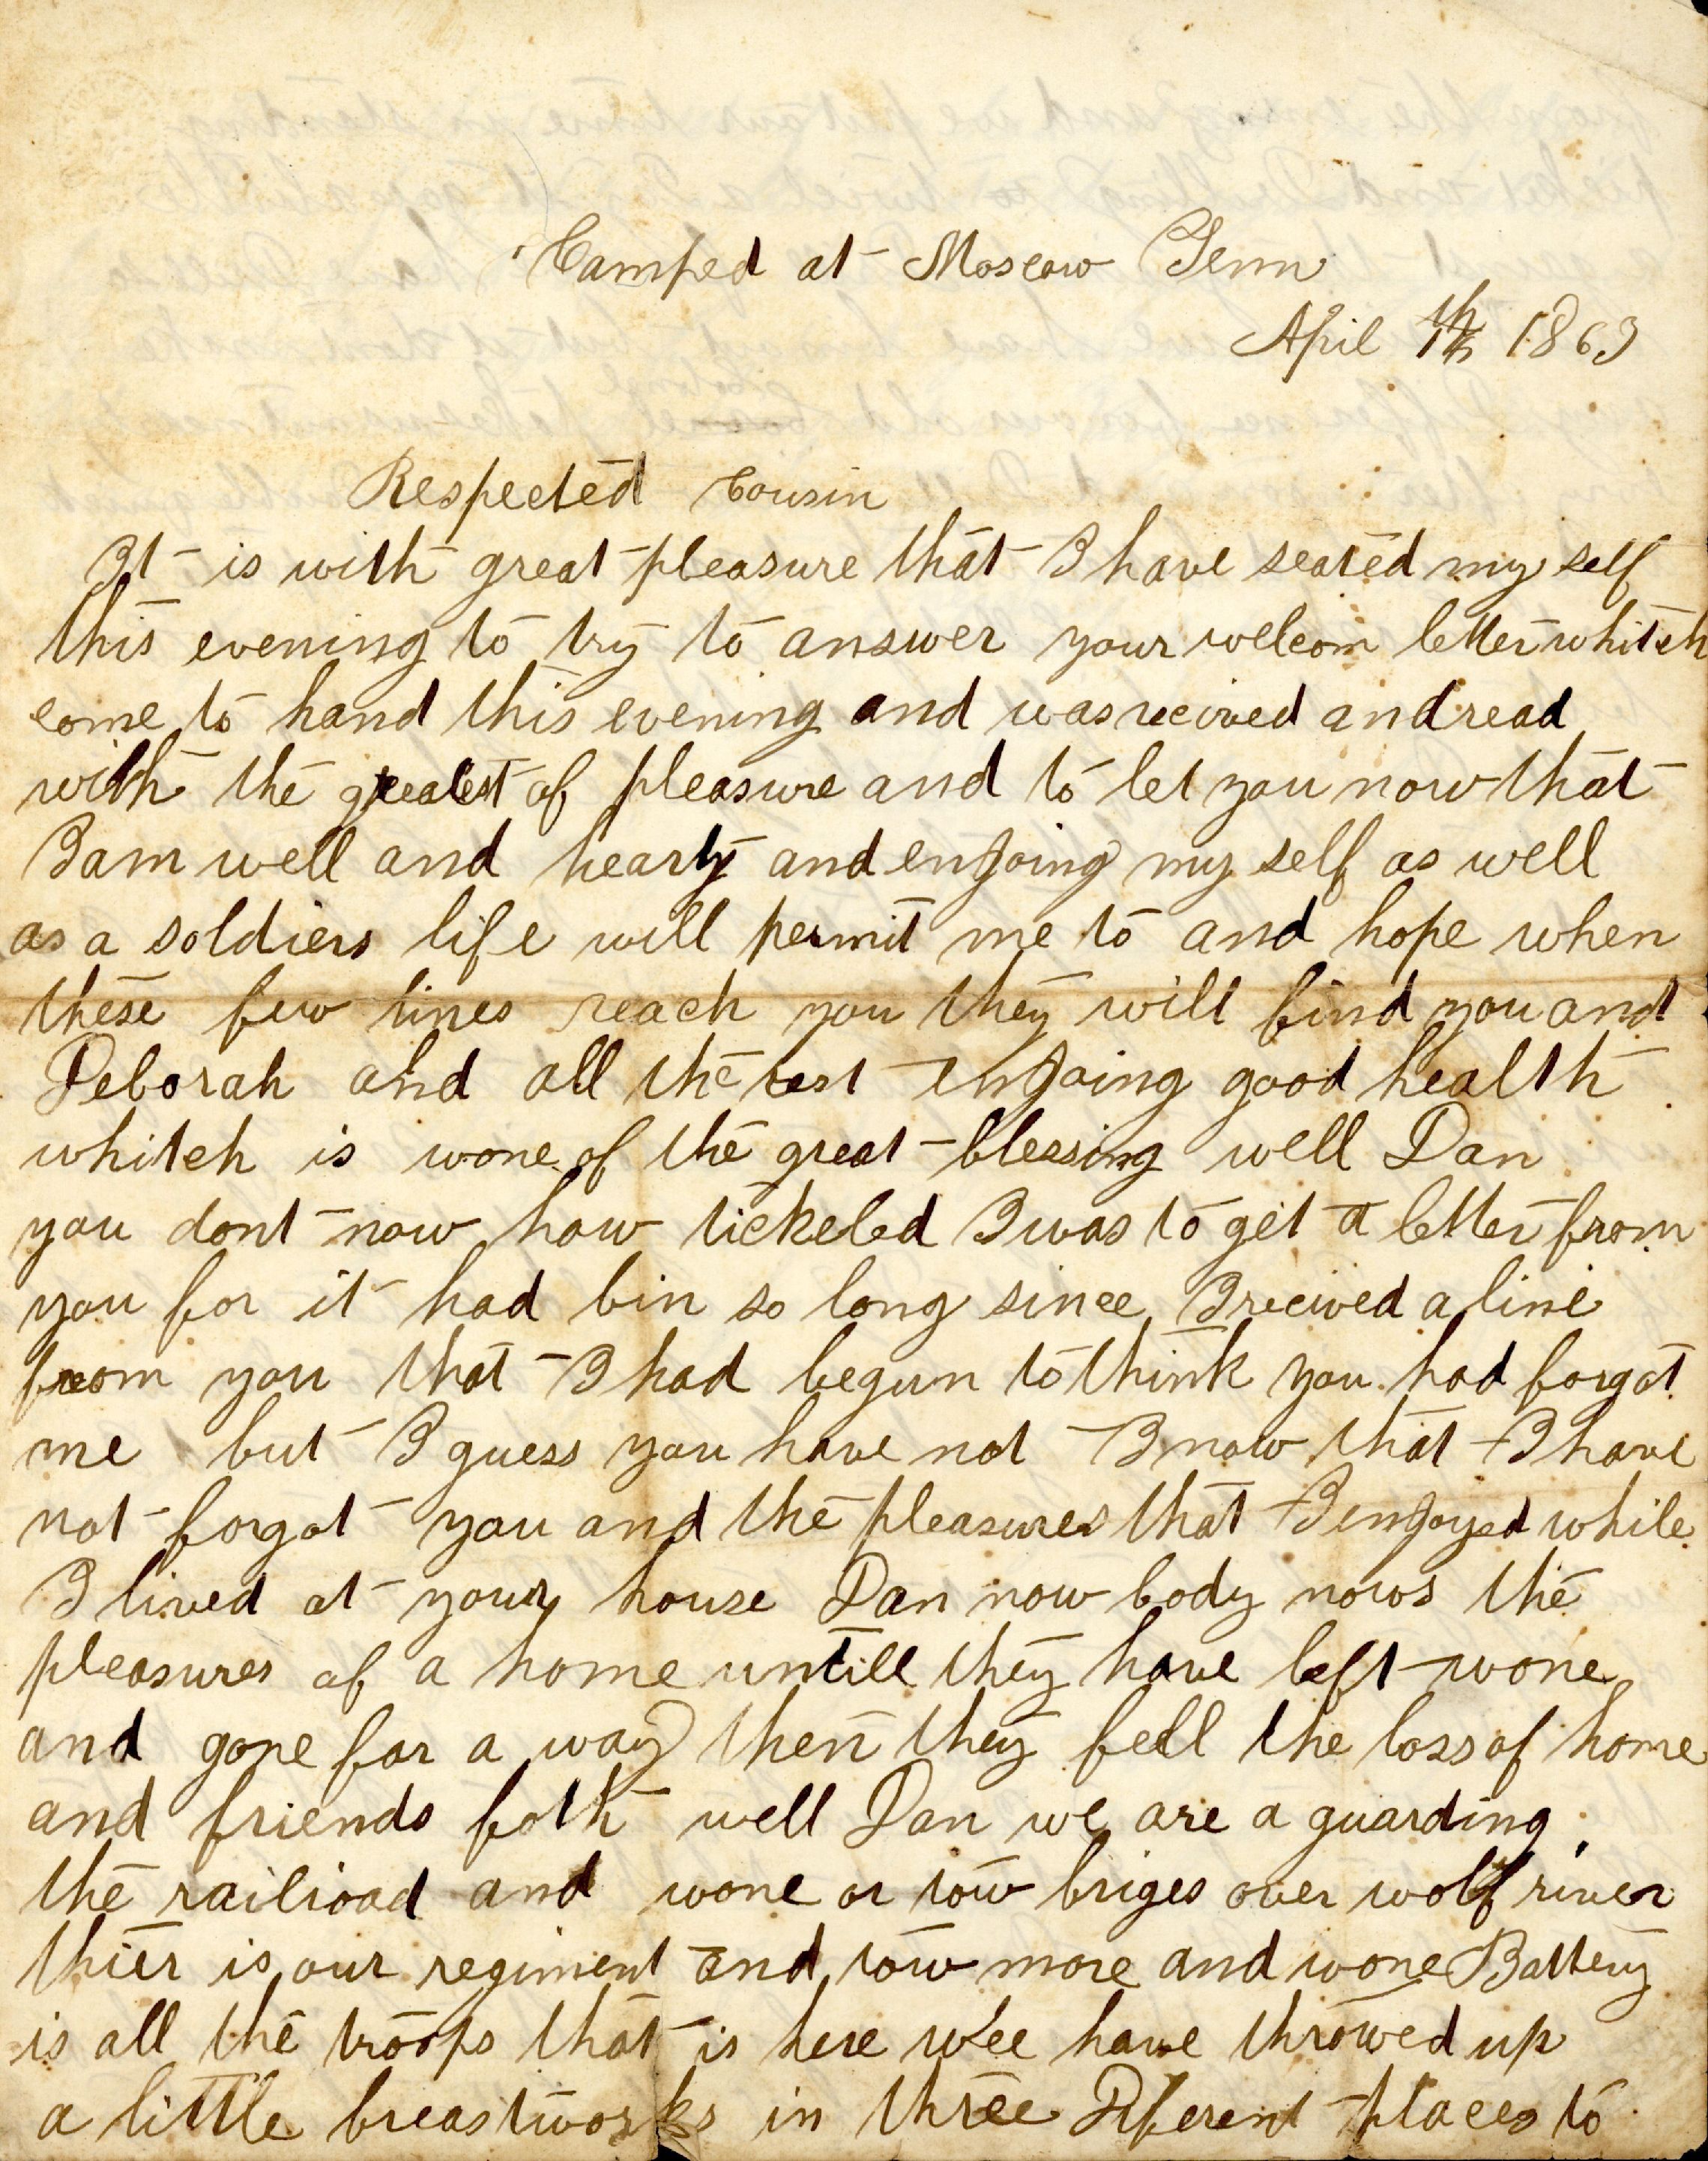 Camped at Moscow Tenn
April 1863
Respected Cousin
It is with great pleasure that I have seated my self
this evening to try to answer your welcom letter whitch
come to hand this evening and was recived and read
with the greatest of pleasure and to let you now that
I am well and hearty and enjoing my self as well
as a soldiers life will permit me to and hope when
these few lines reach you they will find you and
Deborah and all the rest enjoing good health
whitch is wone of the great blessing well Dan
you dont now how tickeled I was to get a letter from
you for it had bin so long since I recived a line
from you that I had begun to think you had forgot
me but I guess you have not I now that I have
not forgot you and the pleasures that I enjoyed while
I lived at your house Dan now body nows the
pleasures of a home untill they have left wone
and gone far a way then they feell the loss of home
and friends both well Dan we are a guarding
the railroad and wone or tow briges over wolf river
thier is our regiment and tow more and wone Battery
is all the troops that is here wee have throwed up
a little breastworks in three Diferent places to